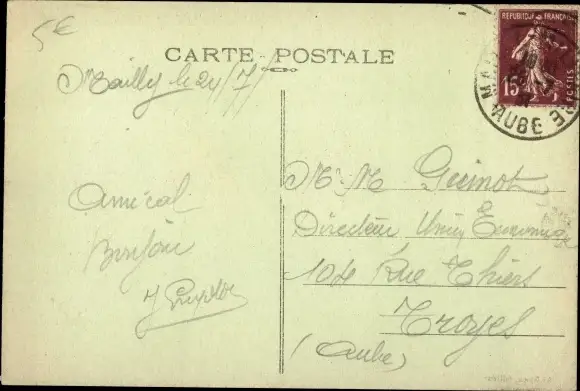 5€
CARTE POSTALE
REPUBLIQUE FRANÇAISE
15
POSTES
MA
AUBE
Mailly le 24/7/
Amical
Bonjour
Mr M Guinot
Directeur Union
104 Rue Thiers
Troyes
(Aube)